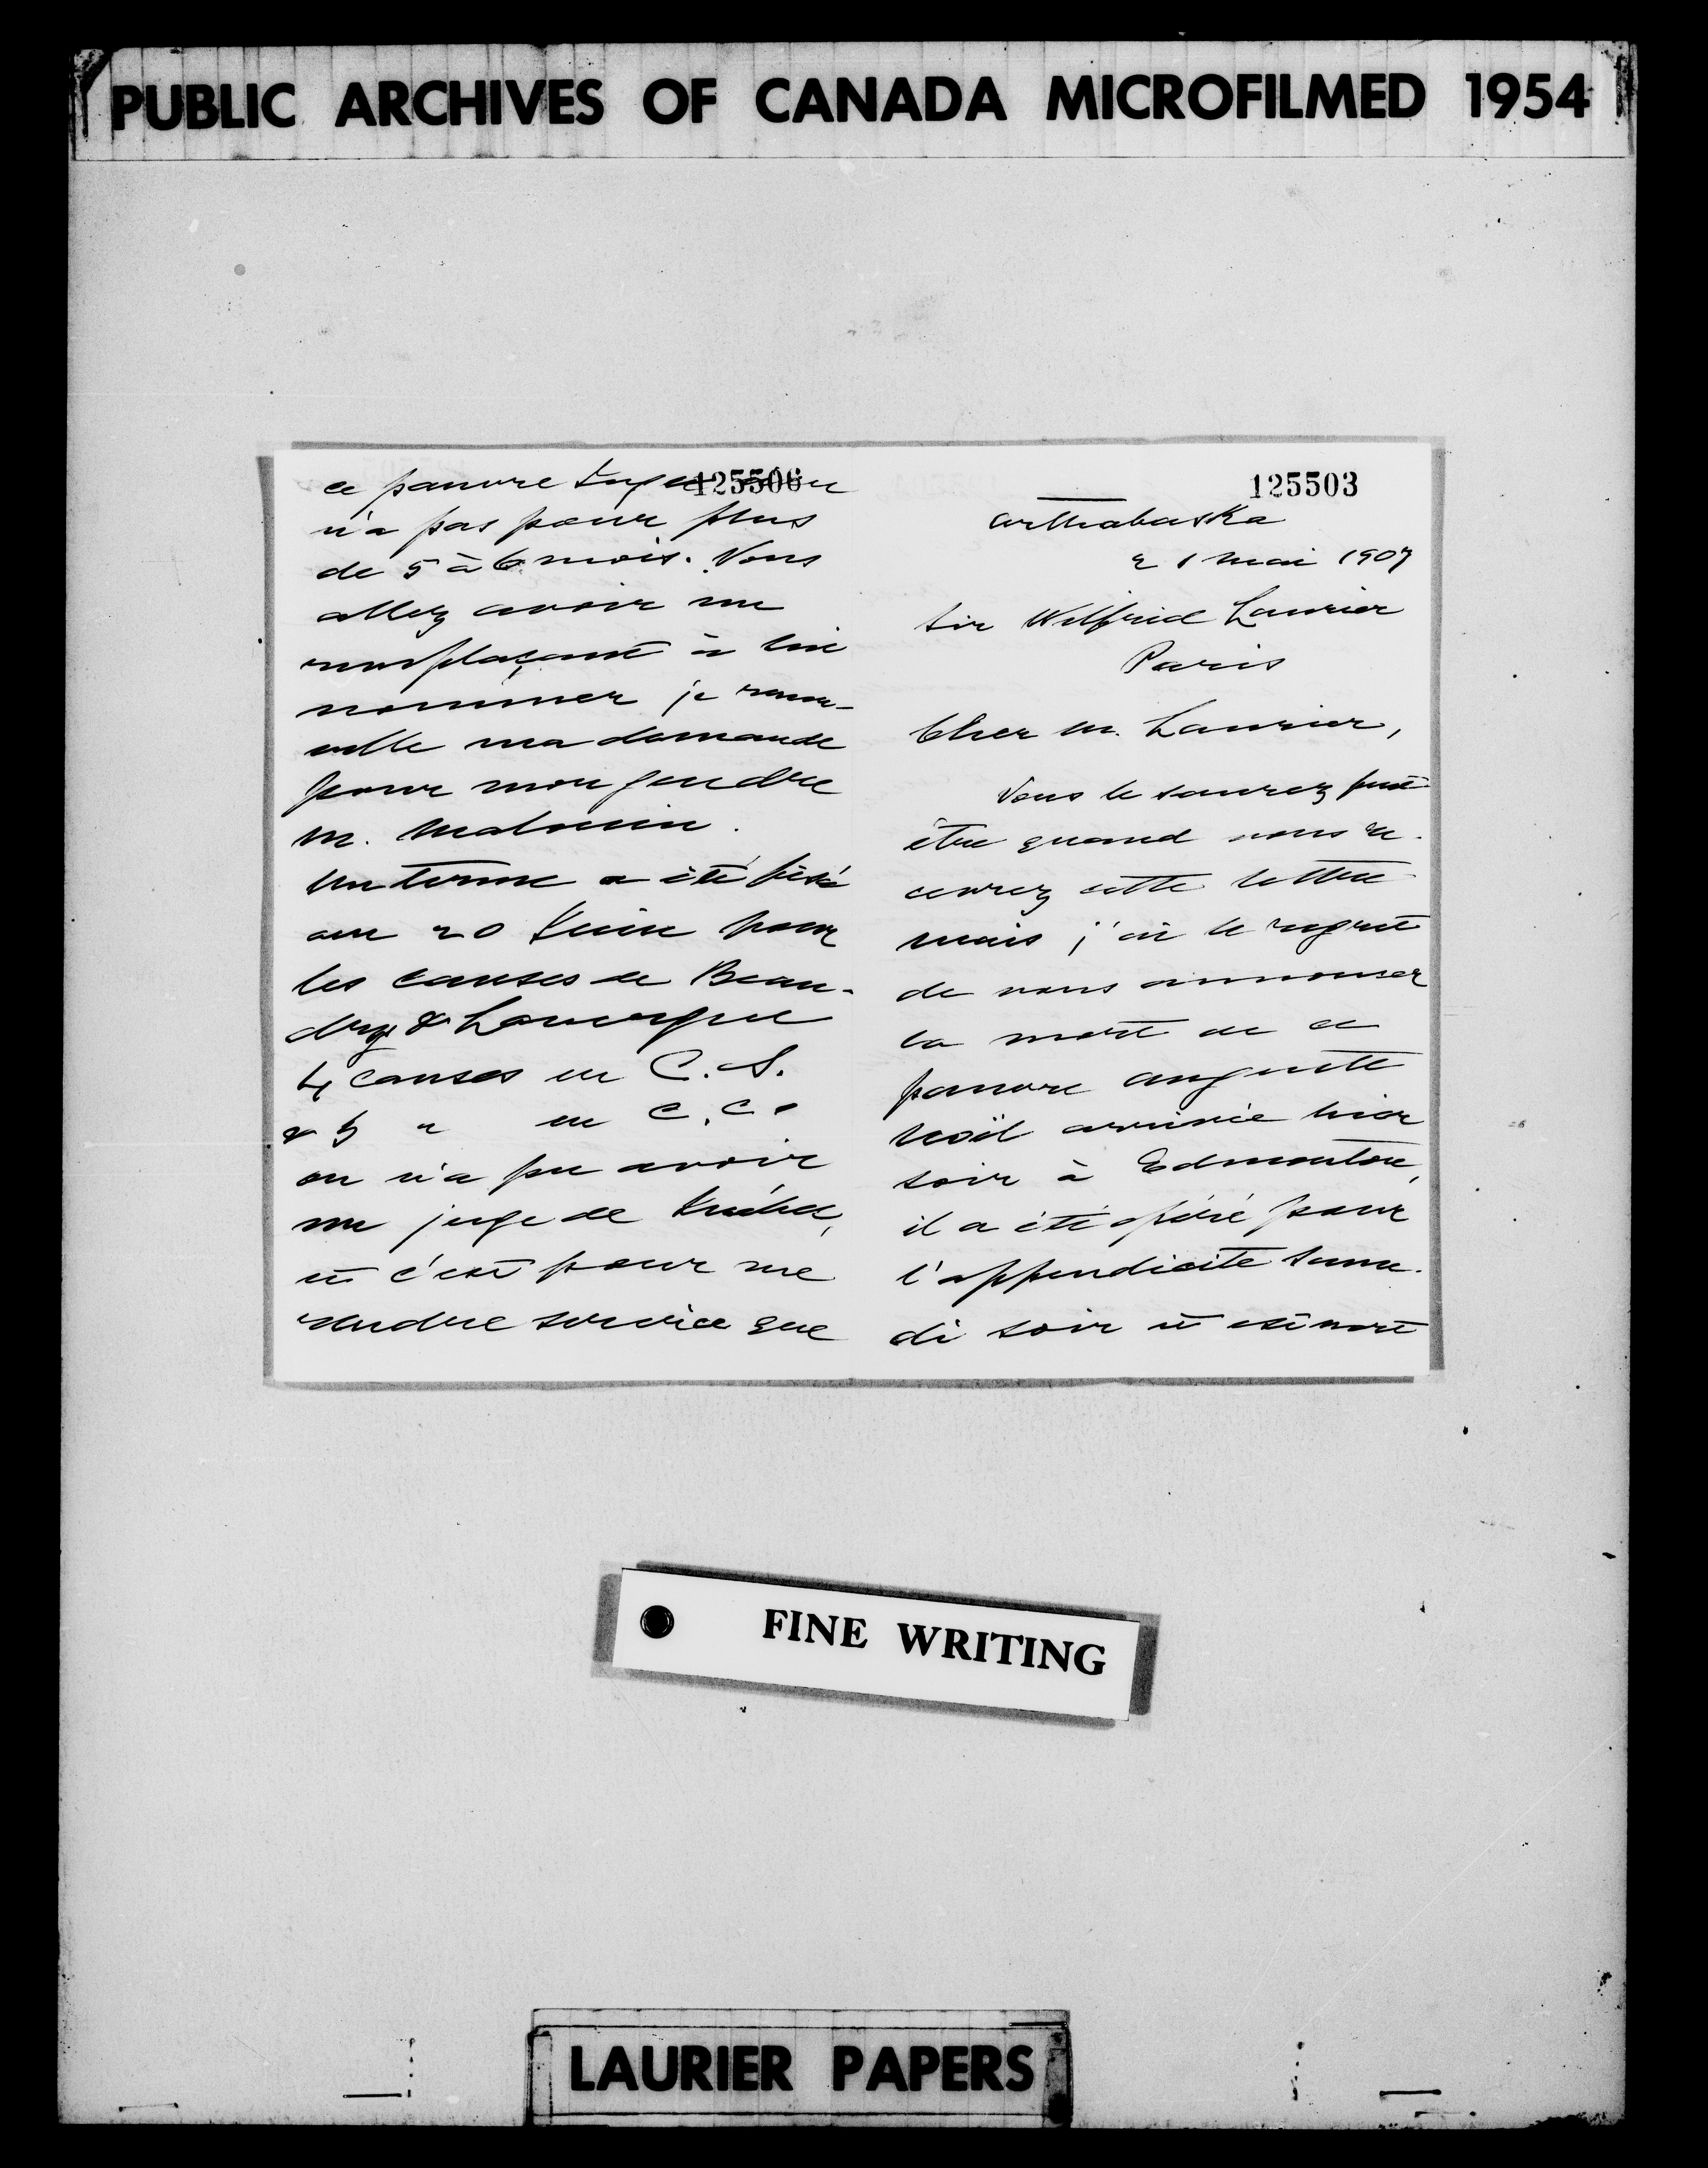 PUBLIC ARCHIVES OF CANADA MICROFILMED 1954
125506
ce pauvre
n'a pas pour plus
de 5 à 6 mois. Vous
allez avoir un
remplaçant à lui
nommer je renou-
velle ma demande
pour mon gendre
M. Malouin.
Un terme a été fixé
au 20 Juin pour
les causes de Beau-
dry &
4 causes en C.S.
& 5 " en C.C.
on n'a pu avoir
un juge de Québec,
et c'est pour me
rendre service que
125503
Arthabaska
21 Mai 1907
Sir Wilfrid Laurier
Paris
Cher M. Laurier,
Vous le saurez peut
être quand vous re-
cevrez cette lettre
mais j'ai le regret
de vous annoncer
la mort de ce
pauvre Auguste
Noël arrivée hier
soir à Edmonton,
il a été opéré pour
l'appendicite same-
di soir et est mort
FINE WRITING
LAURIER PAPERS